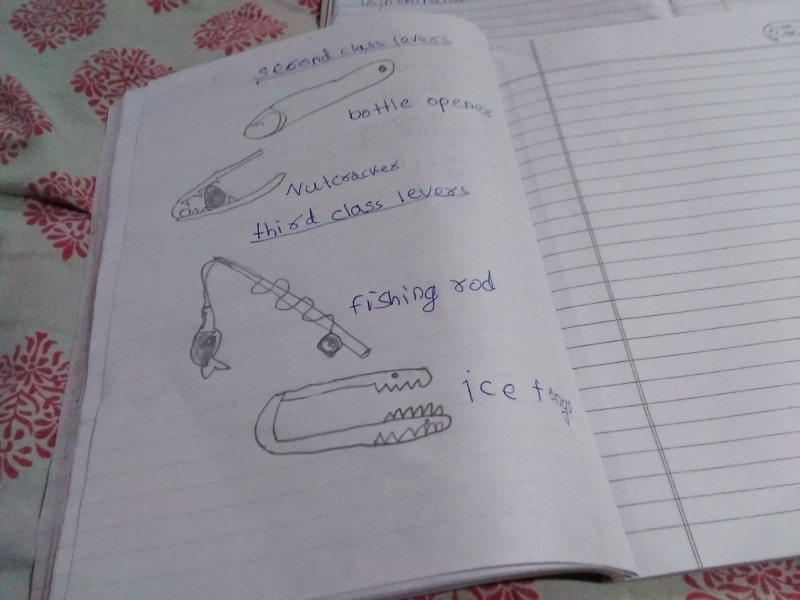 second class levers
bottle opener
Nutcracker
third class levers
fishing rod
ice tongs